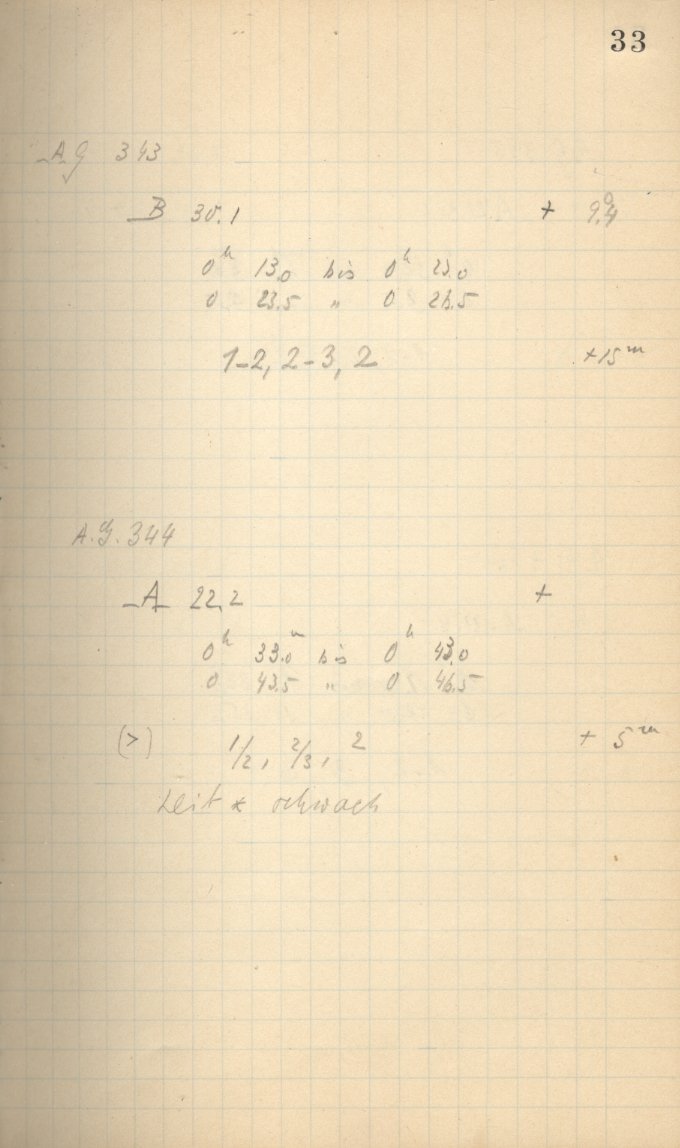 33
A G 343
B 30.1 + 9.4
0h 13.0 bis 0h 23.0
0 23.5 " 0 26.5
1-2, 2-3, 2 +15m
A.G. 344
A 22.2 +
0h 33.0m bis 0h 43.0
0 43.5 " 0 46.5
(>) 1/2, 2/3, 2 + 5m
Leit * schwach